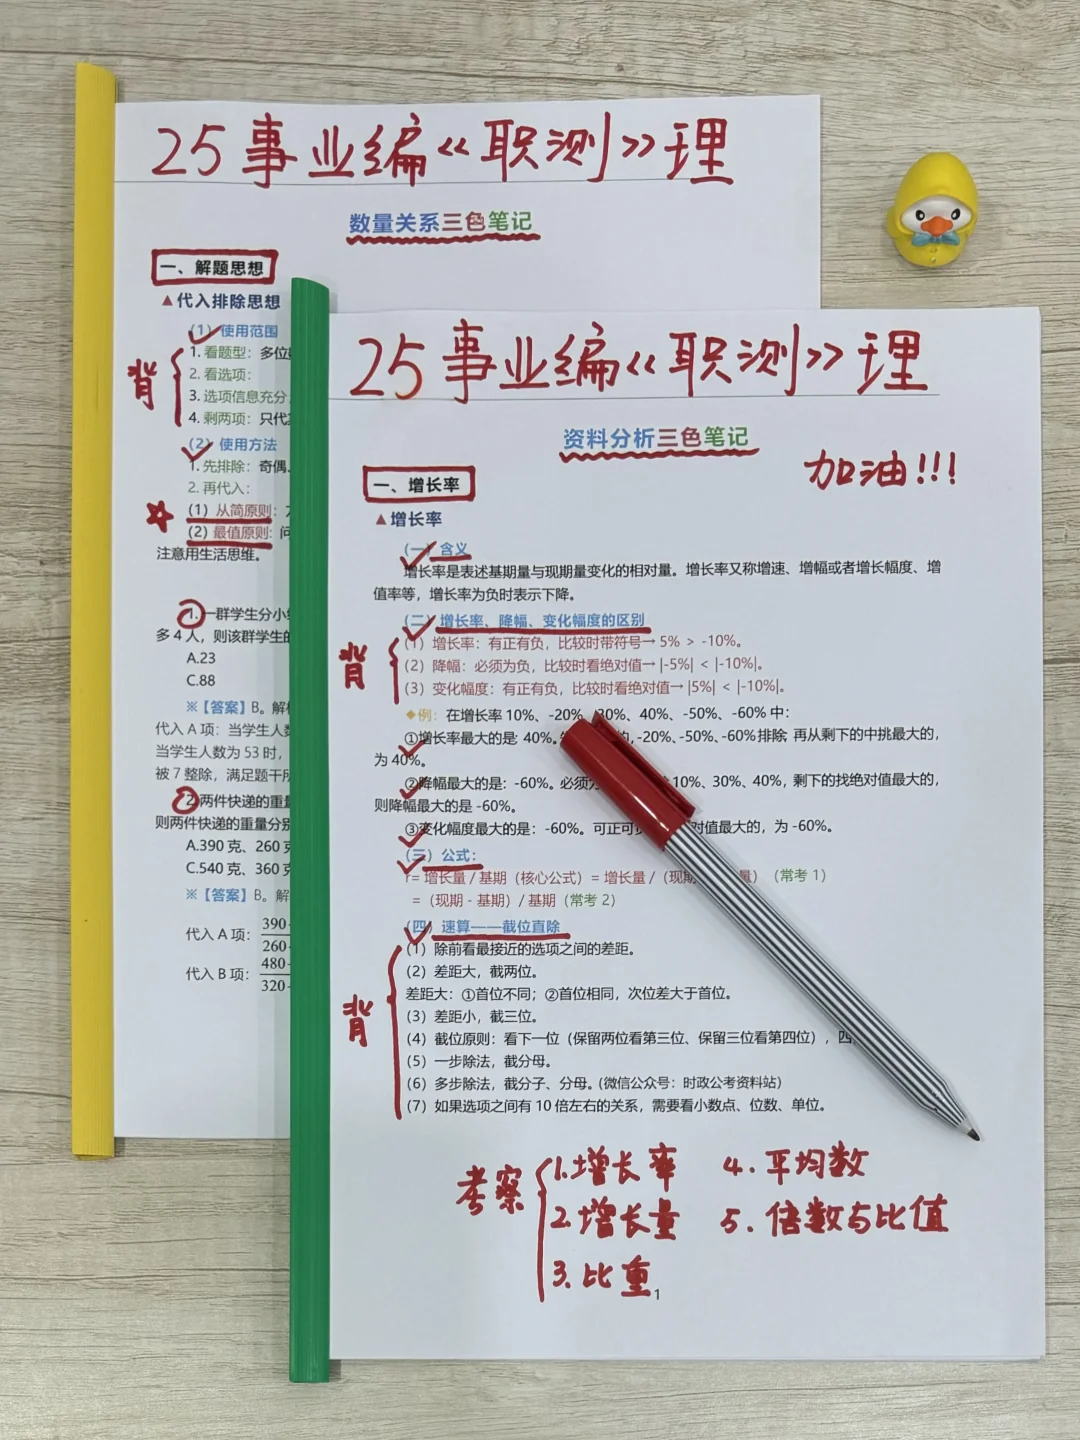 25事业编《职测》理
数量关系三色笔记
一、解题思想
▲代入排除思想
(1) 使用范围
背
1. 看题型：多位
2. 看选项：
3. 选项信息充分
4. 剩两项：只代
(2) 使用方法
1. 先排除：奇偶、
2. 再代入：
(1) 从简原则：
(2) 最值原则：问
注意用生活思维。
1. 一群学生分小
多 4 人，则该群学生的
A.23
C.88
※【答案】B。解
代入 A 项：当学生人数
当学生人数为 53 时，
被 7 整除，满足题干所
2. 两件快递的重量
则两件快递的重量分别
A.390 克、260 克
C.540 克、360 克
※【答案】B。解
代入 A 项：390
260
代入 B 项：480
320
25事业编《职测》理
资料分析三色笔记
加油!!!
一、增长率
▲增长率
(一) 含义
增长率是表述基期量与现期量变化的相对量。增长率又称增速、增幅或者增长幅度、增
值率等，增长率为负时表示下降。
(二) 增长率、降幅、变化幅度的区别
背
(1) 增长率：有正有负，比较时带符号→ 5% > -10%。
(2) 降幅：必须为负，比较时看绝对值→ |-5%| < |-10%|。
(3) 变化幅度：有正有负，比较时看绝对值→ |5%| < |-10%|。
◆例：在增长率 10%、-20%、30%、40%、-50%、-60% 中：
①增长率最大的是 40%。 的，-20%、-50%、-60% 排除，再从剩下的中挑最大的，
为 40%。
②降幅最大的是：-60%。必须为 10%、30%、40%，剩下的找绝对值最大的，
则降幅最大的是 -60%。
③变化幅度最大的是：-60%。可正可 对值最大的，为 -60%。
(三) 公式：
r= 增长量 / 基期（核心公式）= 增长量 /（现期 量）（常考 1）
=（现期 - 基期）/ 基期（常考 2）
(四) 速算——截位直除
背
(1) 除前看最接近的选项之间的差距。
(2) 差距大，截两位。
差距大：①首位不同；②首位相同，次位差大于首位。
(3) 差距小，截三位。
(4) 截位原则：看下一位（保留两位看第三位、保留三位看第四位），四
(5) 一步除法，截分母。
(6) 多步除法，截分子、分母。（微信公众号：时政公考资料站）
(7) 如果选项之间有 10 倍左右的关系，需要看小数点、位数、单位。
考察
1. 增长率 4. 平均数
2. 增长量 5. 倍数与比值
3. 比重
1